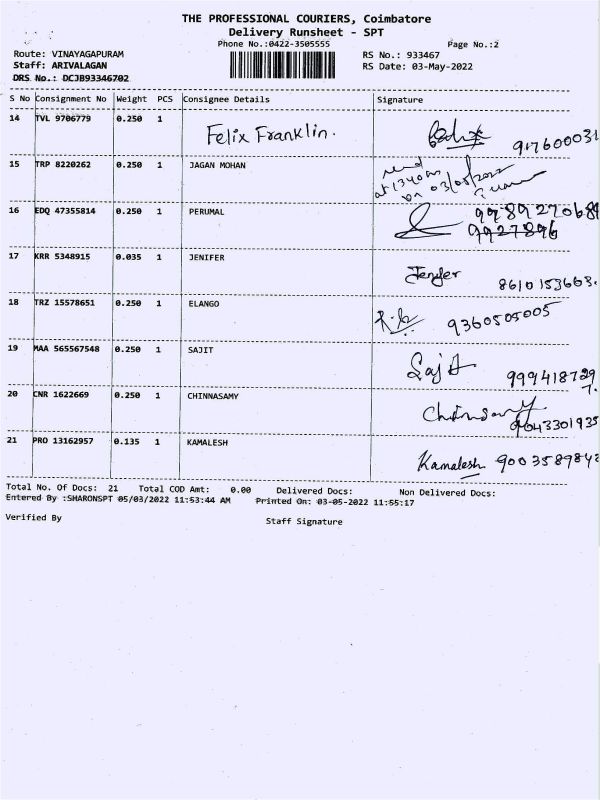 THE PROFESSIONAL COURIERS, Coimbatore
Delivery Runsheet - SPT
Phone No.:0422-3505555 Page No.:2
Route: VINAYAGAPURAM RS No.: 933467
Staff: ARIVALAGAN RS Date: 03-May-2022
DRS No.: DCJB93346702
S No Consignment No Weight PCS Consignee Details Signature
14 TVL 9706779 0.250 1 Felix Franklin. 917600031
15 TRP 8220262 0.250 1 JAGAN MOHAN
at 1340hrs
on 03/05/2022
16 EDQ 47355814 0.250 1 PERUMAL
17 KRR 5348915 0.035 1 JENIFER Jenifer 8610153663.
18 TRZ 15578651 0.250 1 ELANGO 9360505005
19 MAA 565567548 0.250 1 SAJIT Sajit 999418729
7.
20 CNR 1622669 0.250 1 CHINNASAMY Chinnasamy
9043301935
21 PRO 13162957 0.135 1 KAMALESH Kamalesh 9003589842
Total No. Of Docs: 21 Total COD Amt: 0.00 Delivered Docs: Non Delivered Docs:
Entered By :SHARONSPT 05/03/2022 11:53:44 AM Printed On: 03-05-2022 11:55:17
Verified By Staff Signature